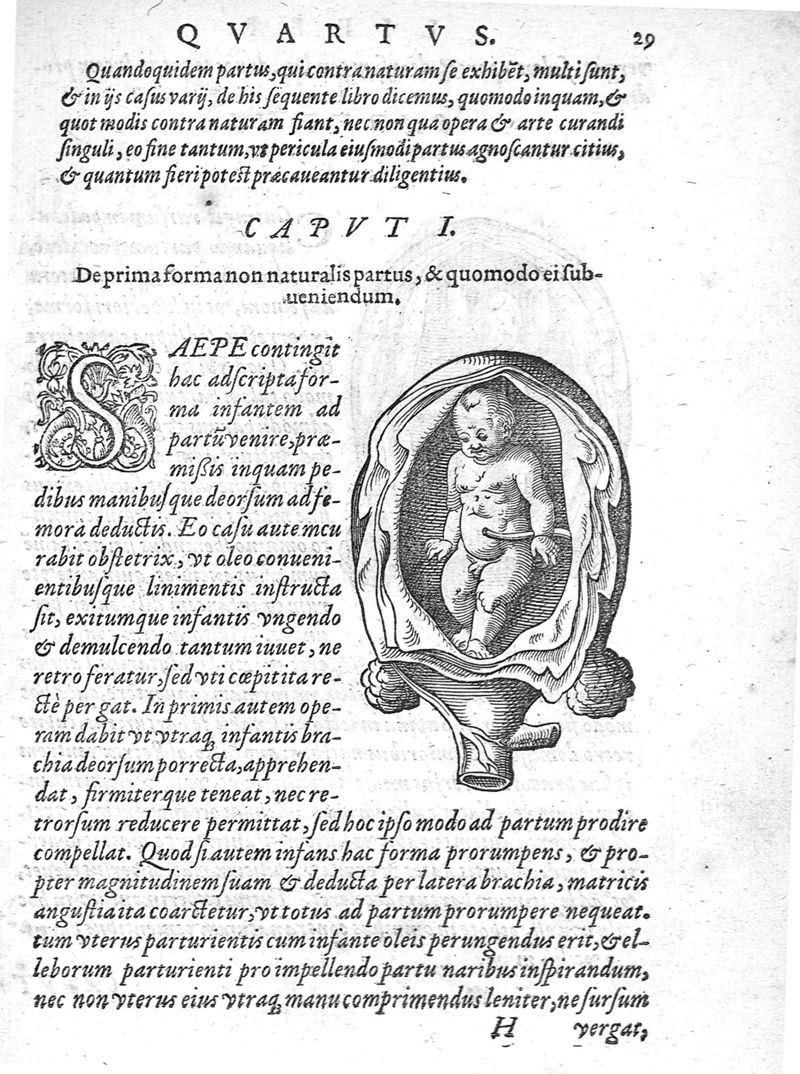 QVARTVS. 29
Quandoquidem partus, qui contra naturam se exhibēt, multi sunt,
& in ijs casus varij, de his sequente libro dicemus, quomodo inquam, &
quot modis contra naturam fiant, nec non qua opera & arte curandi
singuli, eo fine tantum, vt pericula eiusmodi partus agnoscantur citius,
& quantum fieri potest præcaueantur diligentius.
CAPVT I.
De prima forma non naturalis partus, & quomodo ei sub-
ueniendum.
SAEPE contingit
hac adscripta for-
ma infantem ad
partū venire, præ-
mißis inquam pe-
dibus manibusque deorsum ad fe-
mora deductis. Eo casu autem cu
rabit obstetrix, vt oleo conueni-
entibusque linimentis instructa
sit, exitumque infantis vngendo
& demulcendo tantum iuuet, ne
retro feratur, sed vti cœpit ita re-
ctè pergat. In primis autem ope-
ram dabit vt vtraq; infantis bra-
chia deorsum porrecta, apprehen-
dat, firmiterque teneat, nec re-
trorsum reducere permittat, sed hoc ipso modo ad partum prodire
compellat. Quod si autem infans hac forma prorumpens, & pro-
pter magnitudinem suam & deducta per latera brachia, matricis
angustia ita coarctetur, vt totus ad partum prorumpere nequeat.
tum vterus parturientis cum infante oleis perungendus erit, & el-
leborum parturienti pro impellendo partu naribus inspirandum,
nec non vterus eius vtraq; manu comprimendus leniter, ne sursum
H vergat,